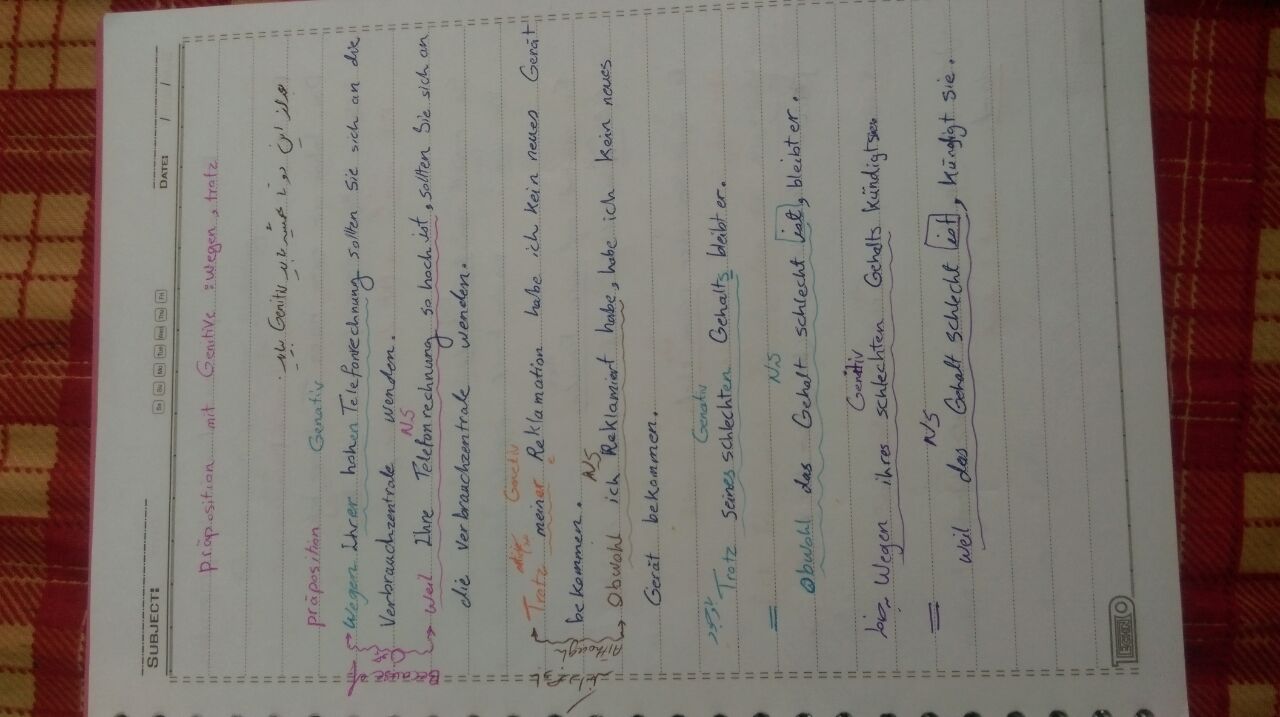 SUBJECT:
Sa Su Mo Tue Wed Thu Fri
DATE: / /
präposition mit Genitive : wegen , tratz
Genitiv
präposition Genativ
Wegen Ihrer hohen Telefonrechnung sollten Sie sich an die
Verbrauchzentrale wenden.
NS
Because
Weil Ihre Telefonrechnung so hoch ist, sollten Sie sich an
die verbrauchzentrale wenden.
Genetiv
Trotz meiner Reklamation habe ich kein neues Gerät
bekommen.
NS
Although
Obwohl ich Reklamiert habe, habe ich kein neues
Gerät bekommen.
Genativ
Trotz seines schlechten Gehalts bleibt er.
= NS
Obwohl das Gehalt schlecht ist, bleibt er.
Genitiv
Wegen ihres schlechten Gehalts kündigt sie
= NS
weil das Gehalt schlecht ist, kündigt sie.